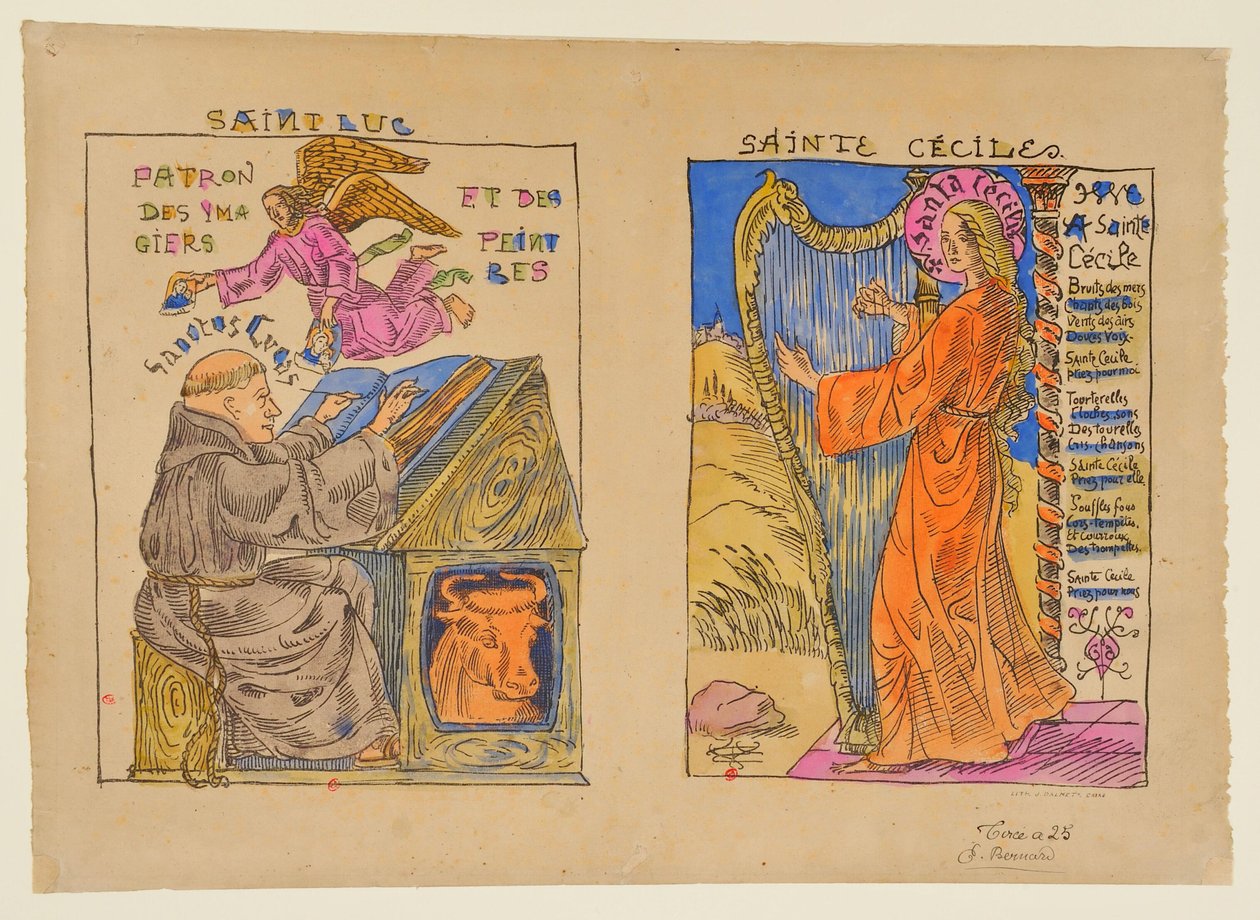 SAINT LUC
PATRON
DES YMA
GIERS
ET DES
PEINT
RES
Sanctos Lucas
SAINTE CÉCILE
Santa Cecilia
A Sainte
Cécile
Bruits des mers
Chants des bois
Vents des airs
Douces Voix-
Sainte Cecile
Priez pour moi
Tourterelles
Cloches, sons
Des tourelles
Cris, chansons
Sainte Cécile
Priez pour elle
Souffles fous
Cors-tempêtes,
Et courroux
Des trompettes.
Sainte Cecile
Priez pour nous
LITH. J. DALMET.
Tiré a 25
E. Bernard